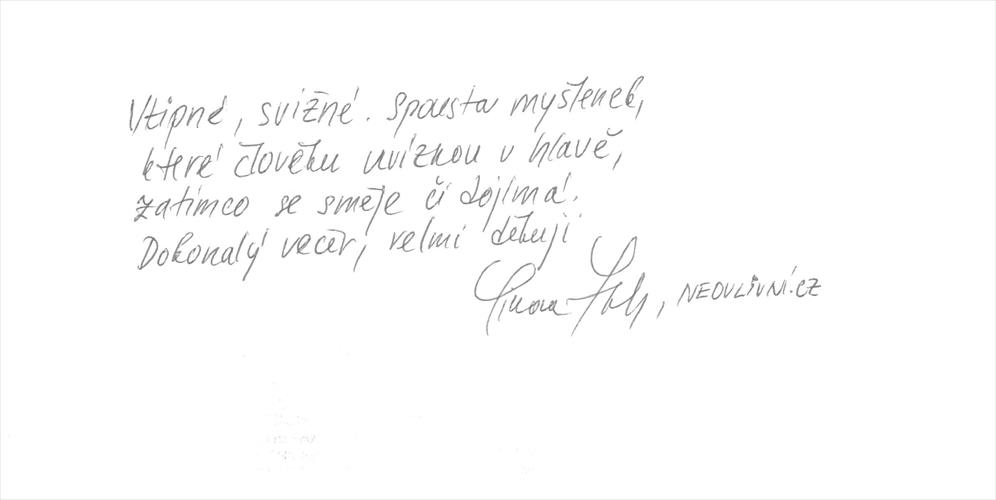 Vtipné, svižné. Spousta myšlenek,
které člověku uvíznou v hlavě,
zatímco se směje či dojímá.
Dokonalý večer, velmi děkuji
, NEOVLIVNÍ.CZ